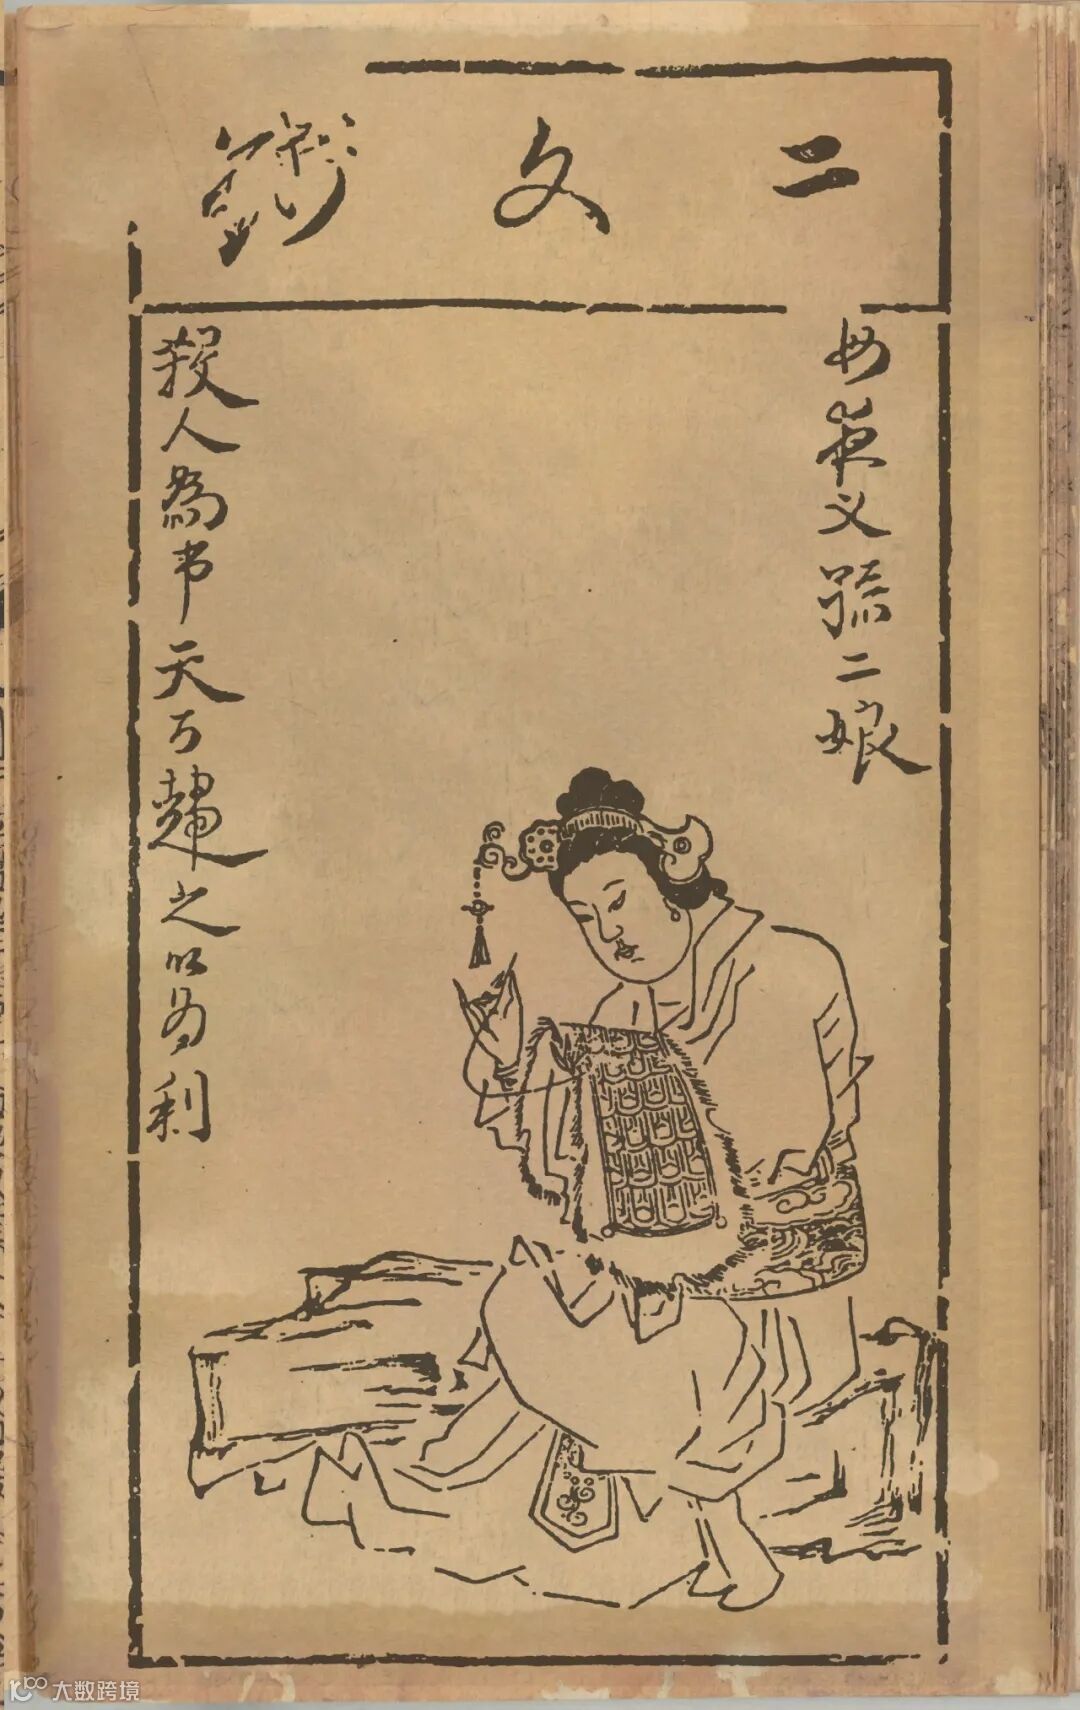 二文錢
母夜叉孫二娘
殺人為市天下趨之以為利
大数跨境